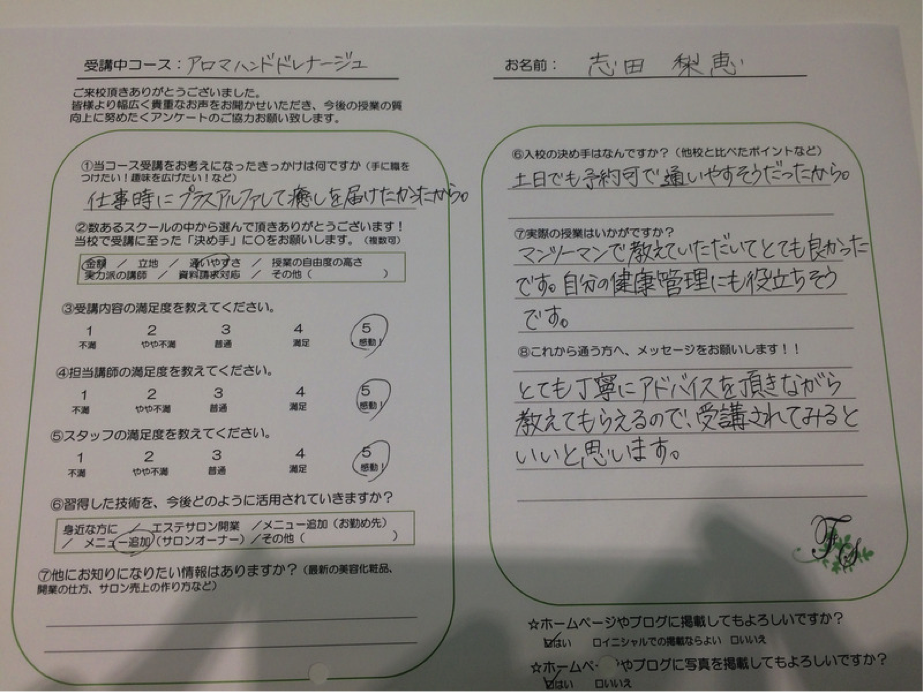 受講中コース：アロマハンドドレナージュ
ご来校頂きありがとうございました。
皆様より幅広く貴重なお声をお聞かせいただき、今後の授業の質
向上に努めたくアンケートのご協力お願い致します。
①当コース受講をお考えになったきっかけは何ですか（手に職を
つけたい！趣味を広げたい！など）
仕事時にプラスアルファして癒しを届けたかったから。
②数あるスクールの中から選んで頂きありがとうございます！
当校で受講に至った「決め手」に〇をお願いします。（複数可）
金額 ／ 立地 ／ 通いやすさ ／ 授業の自由度の高さ
実力派の講師 ／ 資料請求対応 ／ その他（ ）
③受講内容の満足度を教えてください。
1 2 3 4 5
不満 やや不満 普通 満足 感動！
④担当講師の満足度を教えてください。
1 2 3 4 5
不満 やや不満 普通 満足 感動！
⑤スタッフの満足度を教えてください。
1 2 3 4 5
不満 やや不満 普通 満足 感動！
⑥習得した技術を、今後どのように活用されていきますか？
身近な方に ／ エステサロン開業 ／メニュー追加（お勤め先）
／ メニュー追加（サロンオーナー）／その他（ ）
⑦他にお知りになりたい情報はありますか？（最新の美容化粧品、
開業の仕方、サロン売上の作り方など）
お名前： 志田 梨恵
⑥入校の決め手はなんですか？（他校と比べたポイントなど）
土日でも予約可で通いやすそうだったから。
⑦実際の授業はいかがですか？
マンツーマンで教えていただいてとても良かった
です。自分の健康管理にも役立ちそう
です。
⑧これから通う方へ、メッセージをお願いします！！
とても丁寧にアドバイスを頂きながら
教えてもらえるので、受講されてみると
いいと思います。
☆ホームページやブログに掲載してもよろしいですか？
☑はい □イニシャルでの掲載ならよい □いいえ
☆ホームページやブログに写真を掲載してもよろしいですか？
☑はい □いいえ